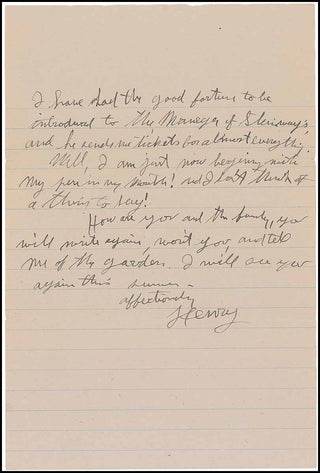 I have had the good fortune to be
introduced to the Maneger of Steinway's
and he sends me tickets for almost everything.
Well, I am just now begining with
my pen in my mouth! and I can't think of
a thing to say!
How are you and the family, you
will write again, won't you, and tell
me of the garden. I will see you
again this summer -
affectionately
Henry